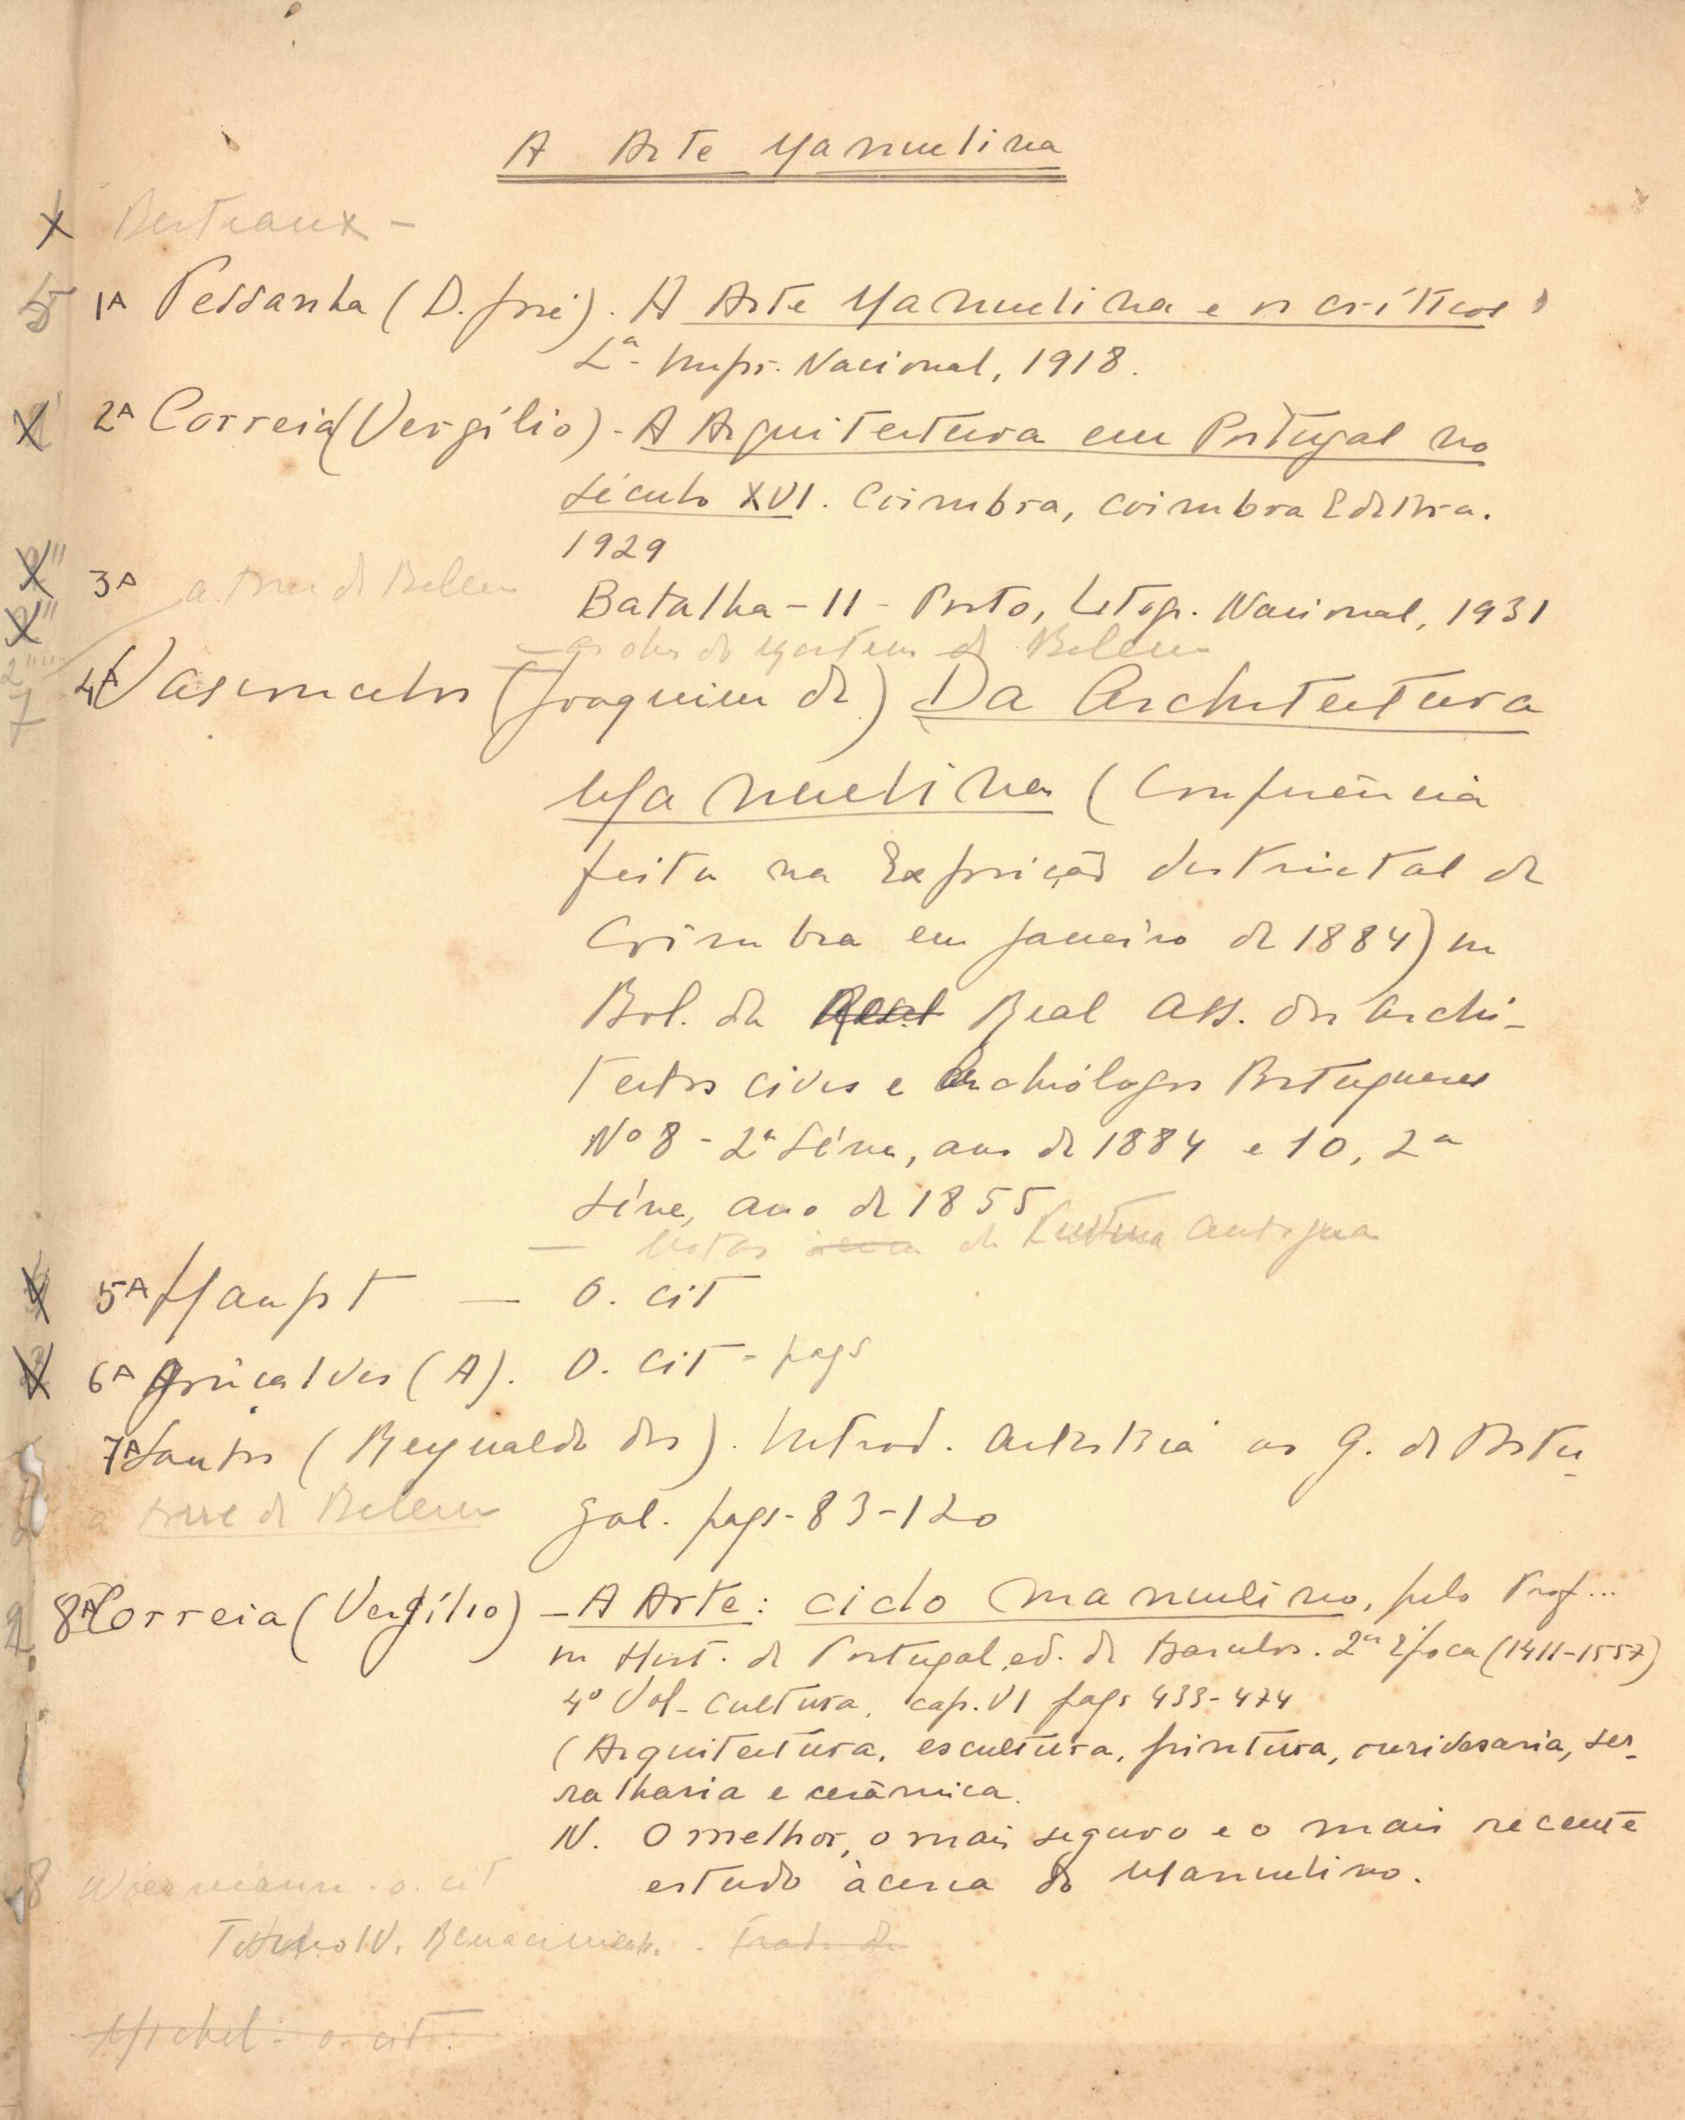 A Arte Manuelina
Berteaux -
1ª Pessanha (D. José). A Arte Manuelina e os críticos,
Lª- Impr. Nacional, 1918.
2ª Correia (Vergílio) - A Arquitectura em Portugal no
século XVI. Coimbra, Coimbra Editora.
1929
3ª a torre de Belem
Batalha - II - Porto, Litogr. Nacional, 1931
- as obras do mosteiro de Belem
4ª Vasconcelos (Joaquim de) Da Architectura
Manuelina (Conferência
feita na Exposição districtal de
Coimbra em Janeiro de 1884) in
Bol. da Real Real Ass. dos Archi-
tectos civis e Archiólogos Portugueses
Nº 8 - 2ª Série, ano de 1884 e 10, 2ª
Série, ano de 1855
- de Lustima Antigua
5ª Haupt - O. cit
6ª Gonçalves (A). O. cit - pags
7ª Santos (Reynaldo dos). Introd. Artistica ao G. de Portu-
a torre de Belem gal. pags - 83-120
8ª Correia (Vergílio) - A Arte: ciclo manuelino, pelo Prof...
in Hist. de Portugal, ed. de Barcelos. 2ª Época (1411-1557)
4º Vol - Cultura, cap. VI pags 433-474
(Arquitectura, escultura, pintura, ourivesaria, ser-
ralharia e cerâmica.
N. O melhor, o mais seguro e o mais recente
estudo àcerca do Manuelino.
8 Woermann - o. cit
Tomo IV. Renacimiento. - Trad. de
Michel - o. cit.